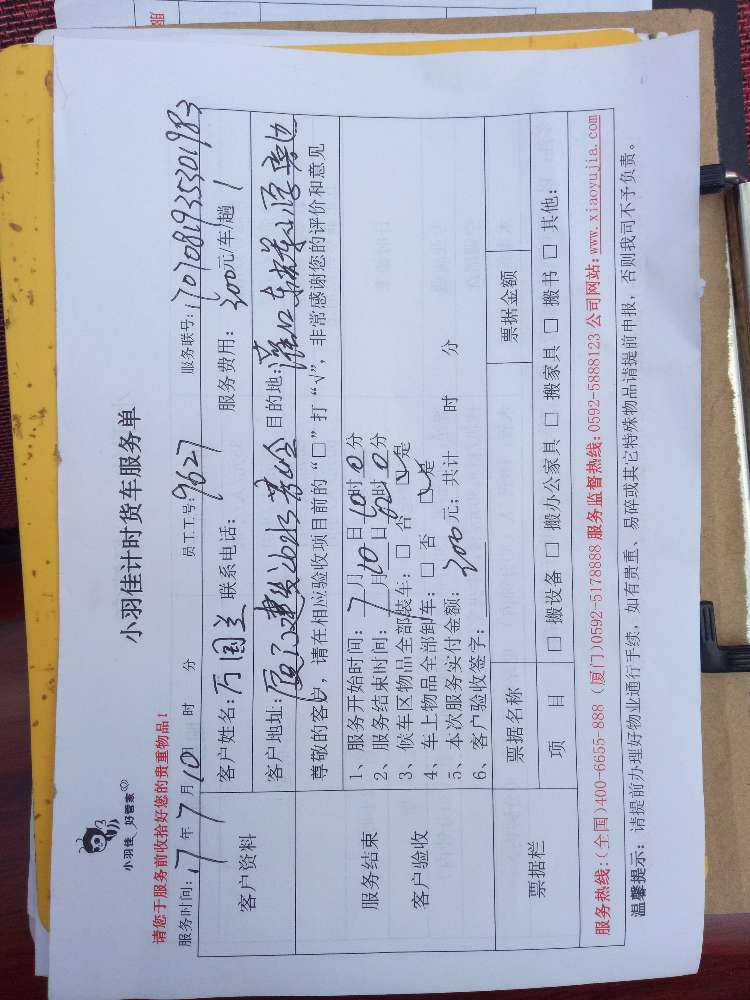 小羽佳 好管家
小羽佳计时货车服务单
请您于服务前收拾好您的贵重物品！
服务时间：17年7月10日 时 分 员工工号：9627 服务联号：1707081935301983
客户资料
客户姓名：万国兰 联系电话： 服务费用：300元/车/趟 1
客户地址：厦门建发 目的地：灌口 旁边
服务结束
客户验收
尊敬的客户，请在相应验收项目前的“□”打“√”，非常感谢您的评价和意见
1、服务开始时间：7月10日10时0分
2、服务结束时间： 月 日 时0分
3、候车区物品全部装车：□ 否 ☑是
4、车上物品全部卸车：□ 否 ☑是
5、本次服务实付金额：300元；共计 时 分
6、客户验收签字：
票据栏
票据名称 票据金额
项 目 □ 搬设备 □ 搬办公家具 □ 搬家具 □ 搬书 □ 其他:
服务热线:(全国)400-6655-888 (厦门)0592-5178888 服务监督热线:0592-5888123 公司网站:www.xiaoyujia.com
温馨提示：请提前办理好物业通行手续，如有贵重、易碎或其它特殊物品请提前申报，否则我司不予负责。